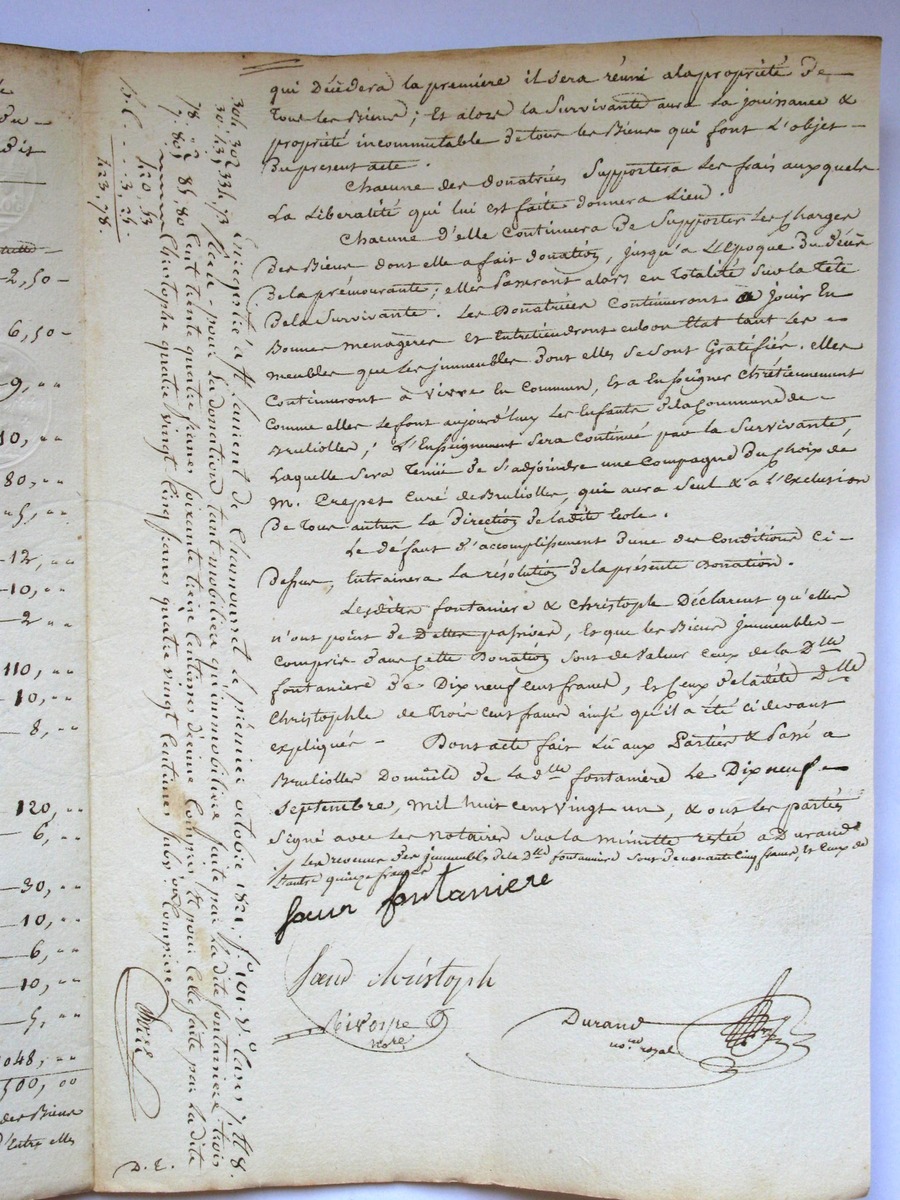 qui Décèdera la première il sera réuni a la propriété de
Tous les Biens; Et alors la Survivante aura la jouissance &
propriété incommutable de tous les Biens qui font L'objet
Du present acte.
Chacune des donatrices Supportera Les frais auxquels
La Liberalité qui lui est faite donnera Lieu.
Chacune D'elle Continuera De Supporter Les Charges
Des Biens dont elle a fait donation, jusqu'a L'Epoque du Décès
De la prémourante; elles passeront alors en Totalité Sur la Tête
De la Survivante. Les Donatrices Continueront a Jouir En
Bonnes menagères et Entretiendront en bon Etat tant les
meubles que les jmmeubles dont elles se sont Gratifiés. elles
Continueront à vivre En Commun, Et a Enseigner Chrétiennement
Comme elles le font aujourd'huy Les Enfants de la Commune de
Brulliolles; L'Enseignement Sera Continué par la Survivante,
Laquelle Sera Tenue de S'adjoindre une Compagne Du Choix de
M. Crepet Curé de Brullioles, qui aura Seul & a L'Exclusion
De Tous autres La Direction de ladite Ecole.
Le défaut d'accomplissement d'une des Conditions Ci-
dessus, Entrainera La résolution de la présente Donation.
Lesdites fontaniere & Christoph Déclarent qu'elles
n'ont point de Dettes passives, Et que les Biens Jmmeubles
Compris dans Cette Donation sont de Valeur Ceux de la Dlle
fontaniere de Dix neuf cent francs, Et Ceux de ladite Dlle
Christophle de Trois Cent francs ainsi qu'il a été ci devant
expliqué - Dont acte fait Lû aux Parties & Passé a
Brulliolles Domicile de La dlle fontaniere Le Dix neuf
Septembre, mil huit cent vingt un, & ont les parties
Signé avec les notaires Sur la minutte restée a Durand
Les revenus des jmmeubles de la Dlle fontaniere Sont de cinq francs, Et Ceux de
L'autre quinze francs
Sœur fontaniere
Sœur christoph
nore
Durand
nore royal
Enregistré à St Laurent de Chamousset Le premier octobre 1821. fo 101. Vo Cases 7 et 8.
pour La donation tant mobilière qu'immobilière faite par La dite fontaniere trois
Cent trente quatre francs soixante treize Centimes dixième Compris & pour Celle faite par La dite
Christophe quatre vingt Cinq francs quatre vingt Centimes Subvon Comprise
334,73
85,80
420,53
3,25
423,78
D.E.
2,50
6,50
9,"
10,"
80,"
5,"
12,"
10,"
2,"
110,"
10,"
8,"
120,"
6,"
30,"
10,"
6,"
10,"
5,"
048,"
500,00
des Biens
d'Entre elles